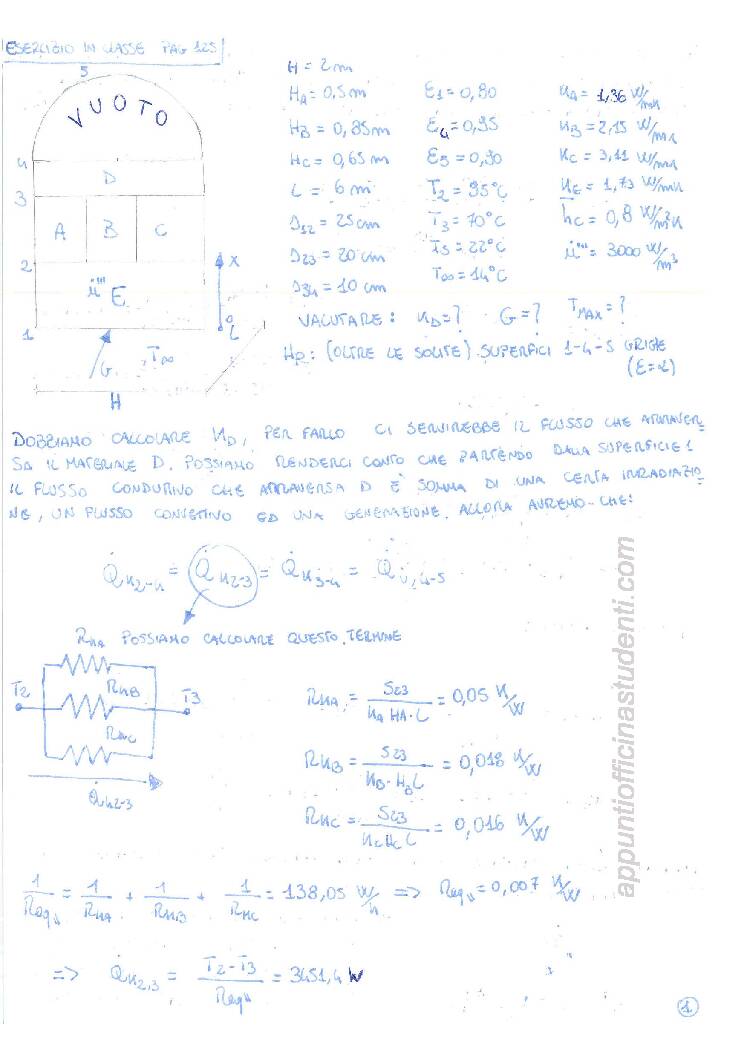 ESERCIZIO IN CLASSE PAG 125
5
VUOTO
4
D
3
A B C
2
u̇''' E
x
0
1
L
G T∞
H
H = 2m
HA = 0,5m ε1 = 0,80 KA = 1,36 W/mK
HB = 0,85m ε4 = 0,95 KB = 2,15 W/mK
HC = 0,65m ε5 = 0,90 KC = 3,11 W/mK
L = 6m T2 = 95°C KE = 1,73 W/mK
S12 = 25cm T3 = 70°C hc = 0,8 W/m²K
S23 = 20cm T5 = 22°C u̇''' = 3000 W/m³
S34 = 10cm T∞ = 14°C
VALUTARE: KD=? G=? TMAX=?
HP: (OLTRE LE SOLITE) SUPERFICI 1-4-5 GRIGIE
(ε=α)
DOBBIAMO CALCOLARE KD, PER FARLO CI SERVIREBBE IL FLUSSO CHE ATTRAVER-
SA IL MATERIALE D. POSSIAMO RENDERCI CONTO CHE PARTENDO DALLA SUPERFICIE 1
IL FLUSSO CONDUTTIVO CHE ATTRAVERSA D È SOMMA DI UNA CERTA IRRADIAZIO
NE, UN FLUSSO CONVETTIVO ED UNA GENERAZIONE. ALLORA AVREMO CHE:
Q̇K2-4 = Q̇K2-3 = Q̇K3-4 = Q̇i,4-5
RKA POSSIAMO CALCOLARE QUESTO TERMINE
T2 RKB T3
RKC
Q̇K2-3
RKA = S23 / KA HA·L = 0,05 K/W
RKB = S23 / KB·HB L = 0,018 K/W
RKC = S23 / KC HC L = 0,016 K/W
1/Req// = 1/RKA + 1/RKB + 1/RKC = 138,05 W/K => Req// = 0,007 K/W
=> Q̇K2,3 = T2-T3 / Req// = 3451,4 W
1
appuntiofficinastudenti.com